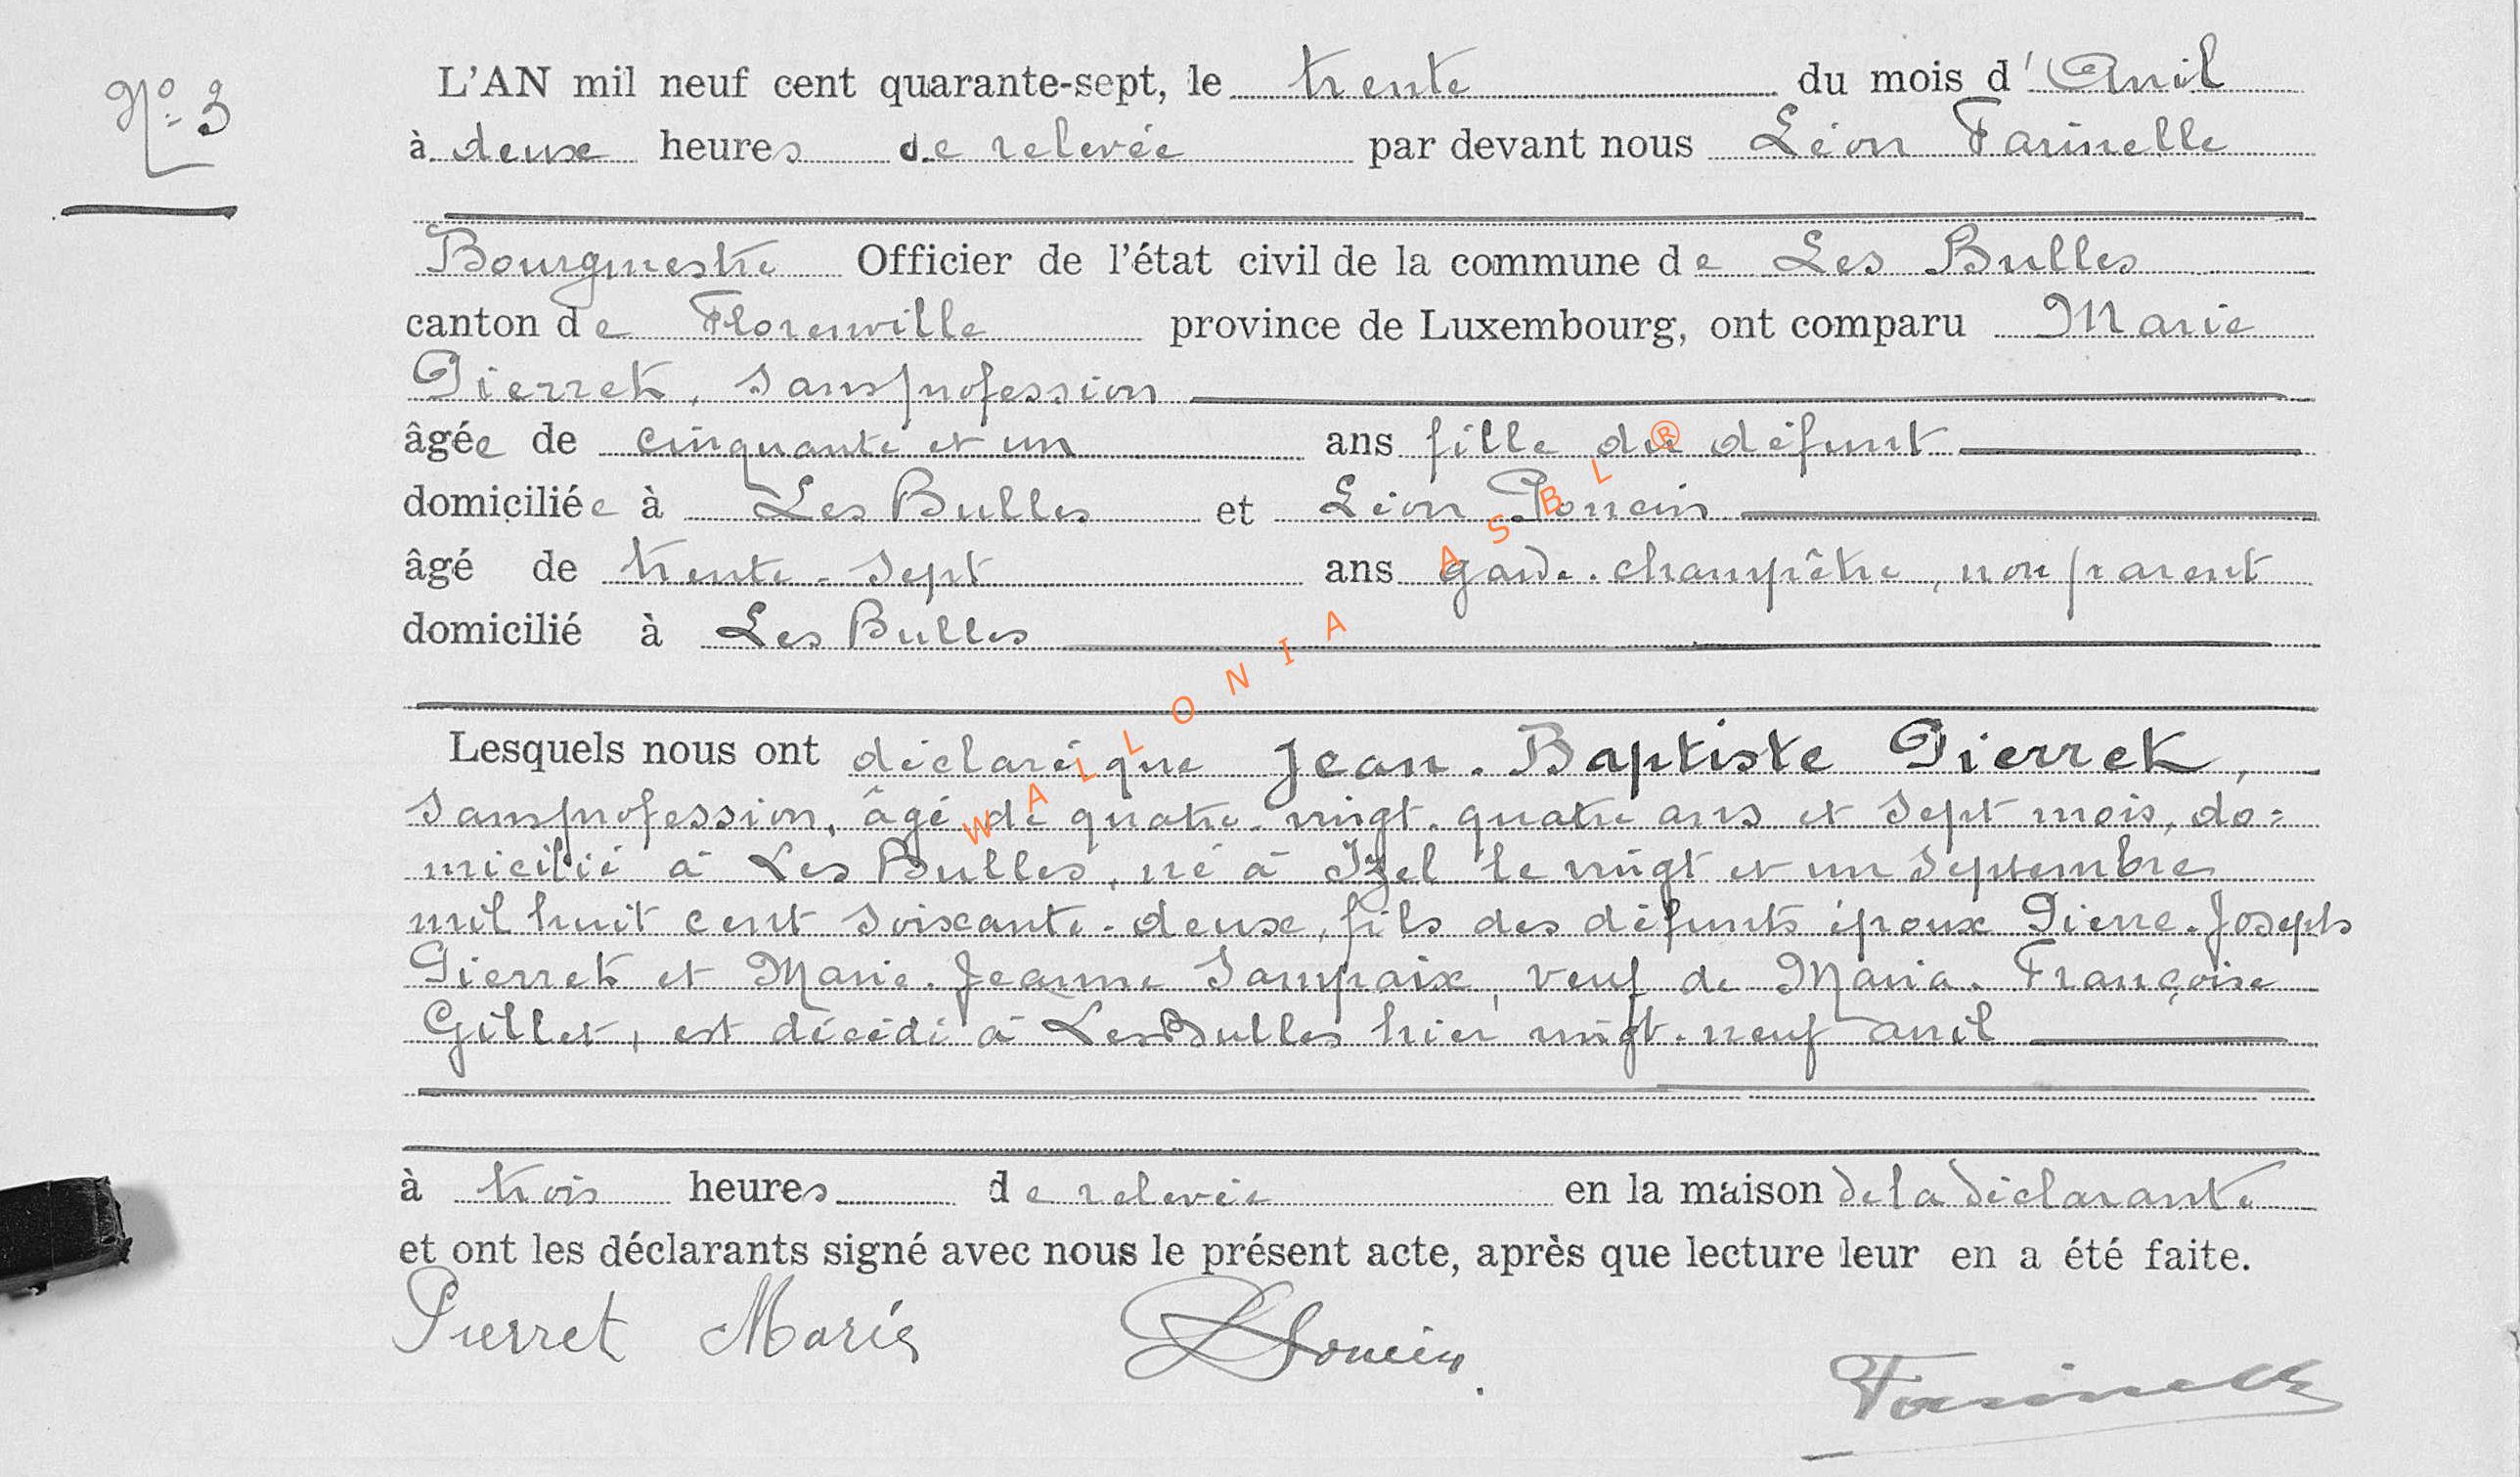 N° 3
L'AN mil neuf cent quarante-sept, le trente du mois d'Avril
à deux heures de relevée par devant nous Léon Farinelle
Bourgmestre Officier de l'état civil de la commune de Les Bulles
canton de Florenville province de Luxembourg, ont comparu Marie
Pierret, sans profession
âgée de cinquante et un ans fille du défunt
domiciliée à Les Bulles et Léon Poncin
âgé de trente-sept ans garde-champêtre, non parent
domicilié à Les Bulles
Lesquels nous ont déclaré que Jean-Baptiste Pierret,
sans profession, âgé de quatre-vingt-quatre ans et sept mois, do=
micilié à Les Bulles, né à Izel le vingt et un septembre
mil huit cent soixante-deux, fils des défunts époux Pierre-Joseph
Pierret et Marie-Jeanne Sampaix, veuf de Maria-Françoise
Gillet, est décédé à Les Bulles hier vingt-neuf avril
à trois heures de relevée en la maison de la déclarante
et ont les déclarants signé avec nous le présent acte, après que lecture leur en a été faite.
Pierret Marie LPoncin. Farinelle
WALLONIA ASBL®